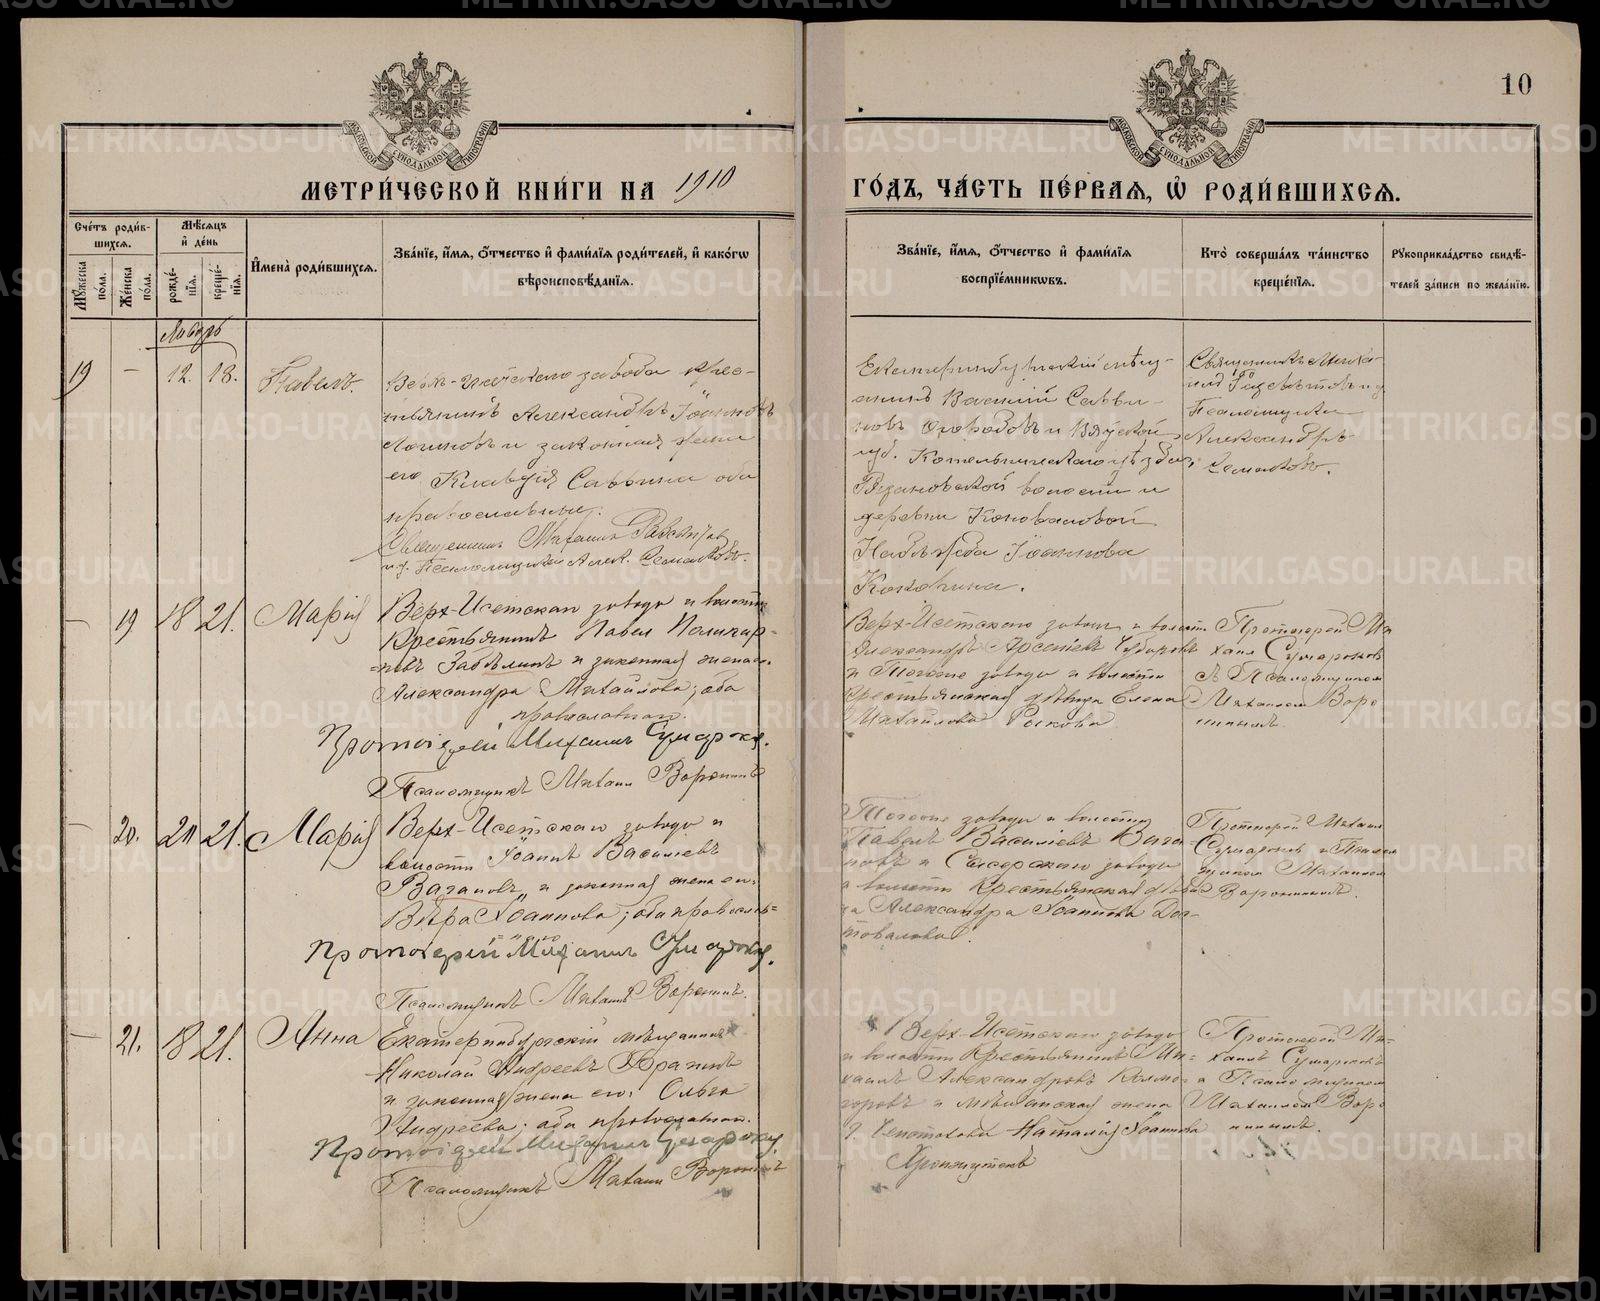 10
МЕТРИ́ЧЕСКОЙ КНИ́ГИ НА 1910 ГО́ДЪ, ЧА́СТЬ ПЕ́РВАЯ, Ѡ РОДИ́ВШИХСЯ.
Сче́тъ роди́в-
шихся.
Му́жеска по́ла.
Же́нска по́ла.
Мѣ́сяцъ
и҆ де́нь
рожде́-
нїя.
креще́-
нїя.
И҆мена̀ роди́вшихся.
Зва́нїе, и҆́мя, ѻ҆́тчество и҆ фами́лїя роди́телей, и҆ како́гѡ
вѣроисповѣ́данїя.
Зва́нїе, и҆́мя, ѻ҆́тчество и҆ фами́лїя
воспрїе́мникѡвъ.
Кто̀ соверша́лъ та́инство
креще́нїя.
Рꙋкоприкла́дство свидѣ́-
телей за́писи по жела́нїю.
Январь
19 — 12. 18. Павелъ.
Верх-Исетскаго завода крес-
тьянинъ Александръ Іоанновъ
Логиновъ и законная жена
его Клавдія Саввина оба
православные.
Священникъ Михаилъ
и.д. Псаломщика Алек.
Екатеринбургскій мѣщ-
анинъ Василій Савви-
новъ и Вятской
губ. Котельническаго уѣзда,
волости и
деревни Коноваловой
Надѣжда Іоаннова
Священникъ Миха-
илъ и д
Псаломщика
Александръ
— 19 18 21. Марія
Верх-Исетскаго завода и волости
Крестьянинъ Павелъ Поликар-
повъ Забѣлинъ и законная жена его
Александра Михайлова; оба
православные.
Протоіерей Михаилъ Сумароковъ.
Псаломщикъ Михаилъ Воронинъ
Верх-Исетскаго завода и волости
Александръ Арсеніевъ
и Тогоже завода и волости
Крестьянская дѣвица Елена
Михайлова
Протоіерей Ми-
хаилъ Сумароковъ
съ Псаломщикомъ
Михаиломъ Воро
нинымъ.
— 20. 20 21. Марія
Верх-Исетскаго завода и
волости Іоаннъ Васильевъ
Вагановъ и законная жена его
Вѣра Іоаннова; оба православ-
ные
Протоіерей Михаилъ Сумароковъ.
Псаломщикъ Михаилъ Воронинъ.
Тогоже завода и волости
Павелъ Васильевъ Вага-
новъ и Сысертскаго завода
и волости Крестьянская дѣви
ца Александра Іоаннова
Протоіерей Михаилъ
Сумароковъ и Псалом
щикъ Михаилъ
Воронинъ.
— 21. 18 21. Анна
Екатеринбургскій мѣщанинъ
Николай Андреевъ Брагинъ
и законная жена его Ольга
Андреева; оба православные.
Протоіерей Михаилъ Сумароковъ.
Псаломщикъ Михаилъ Воронинъ
Верх-Исетскаго завода
и волости Крестьянинъ Ми-
хаилъ Александровъ Колмо-
горовъ и мѣщанская жена
г. Наталія Іоаннова
Протоіерей Ми-
хаилъ Сумароковъ
и Псаломщикъ
Михаилъ Воро
нинъ.
METRIKI.GASO-URAL.RU